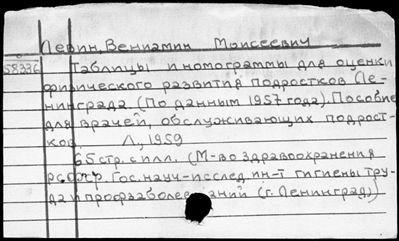 Левин, Вениамин Моисеевич
58336 Таблицы и номограммы для оценки
физического развития подростков Ле-
нинграда. (По данным 1957 года). Пособие
для врачей, обслуживающих подрост-
ков. Л., 1959
65 стр. с илл. (М-во здравоохранения
РСФСР Гос. науч.-исслед. ин-т гигиены тру-
да и профзаболеваний (г. Ленинград)